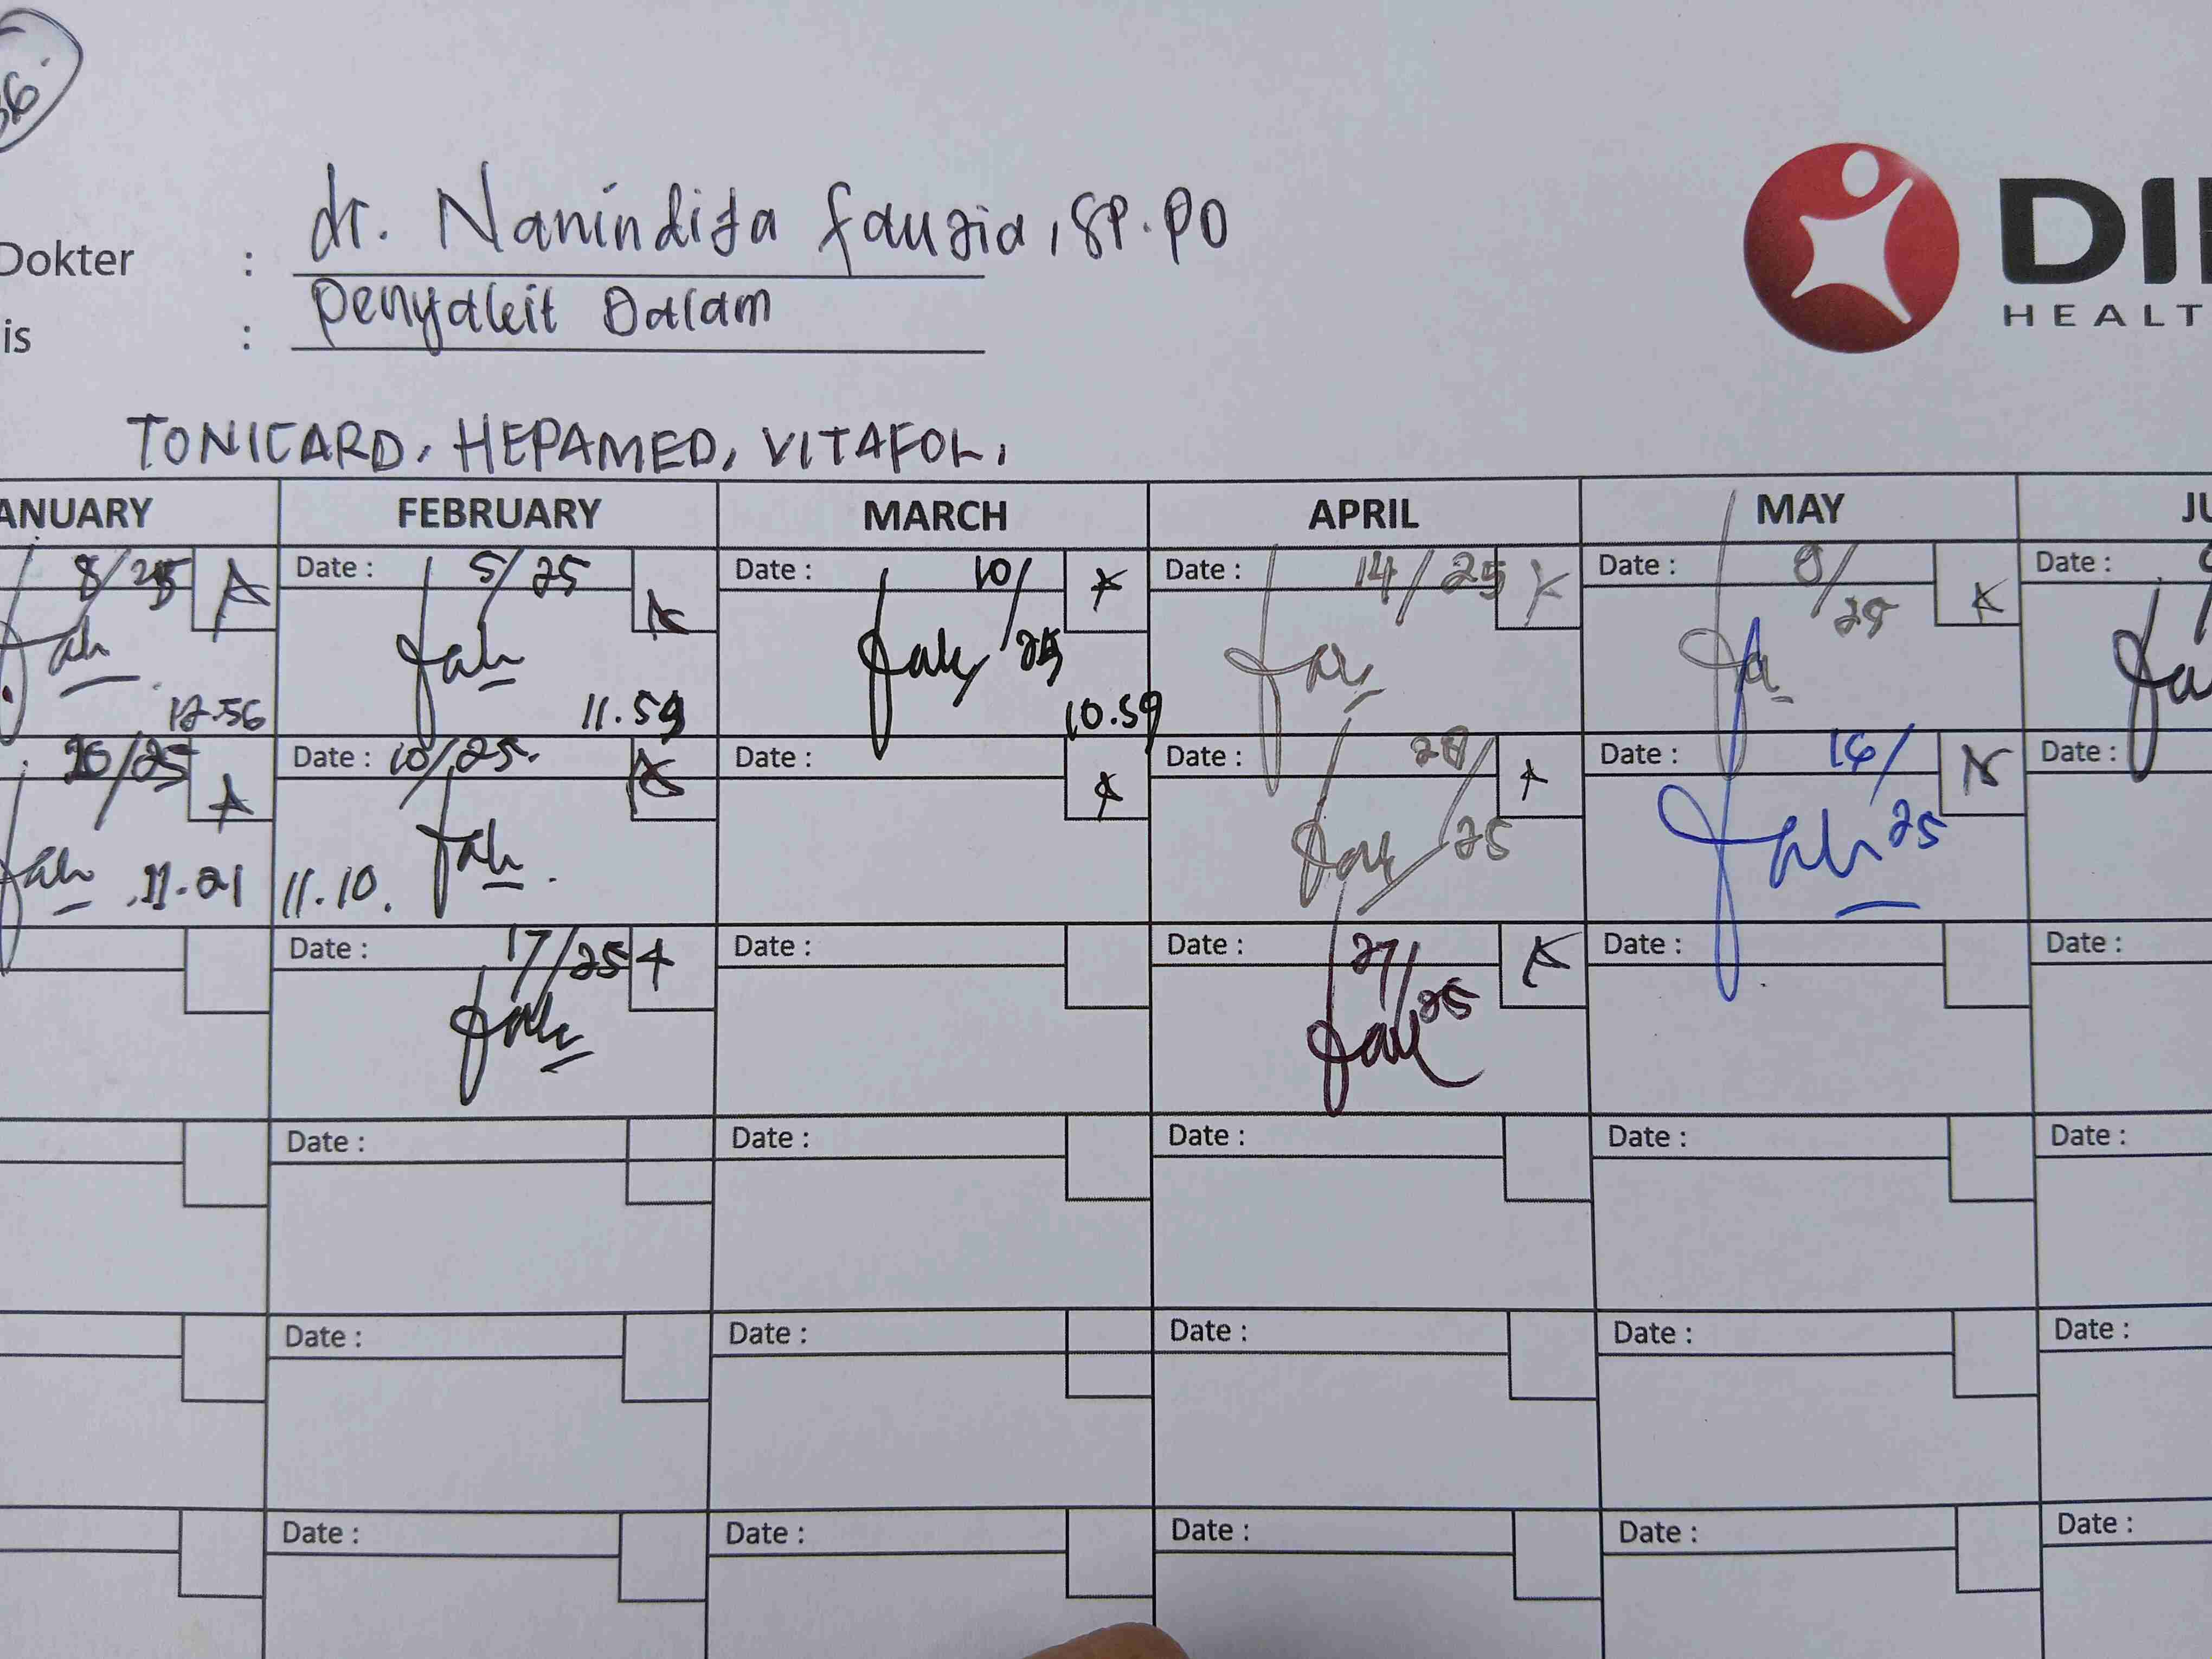 36.
Dokter : dr. Nanindita Fauzia, SP.PD
is : Penyakit Dalam
DI
HEALT
TONICARD, HEPAMED, VITAFOL,
ANUARY FEBRUARY MARCH APRIL MAY JU
8/25 A Date : 5/25 Date : 10/25 Date : 14/25 Date : 8/25 Date :
12.56 11.59 10.59
25 Date : 10/25. Date : Date : 28/25 Date : 16/25 Date :
11.21 11.10.
Date : 17/25 Date : Date : 27/25 Date : Date :
Date : Date : Date : Date : Date :
Date : Date : Date : Date : Date :
Date : Date : Date : Date : Date :